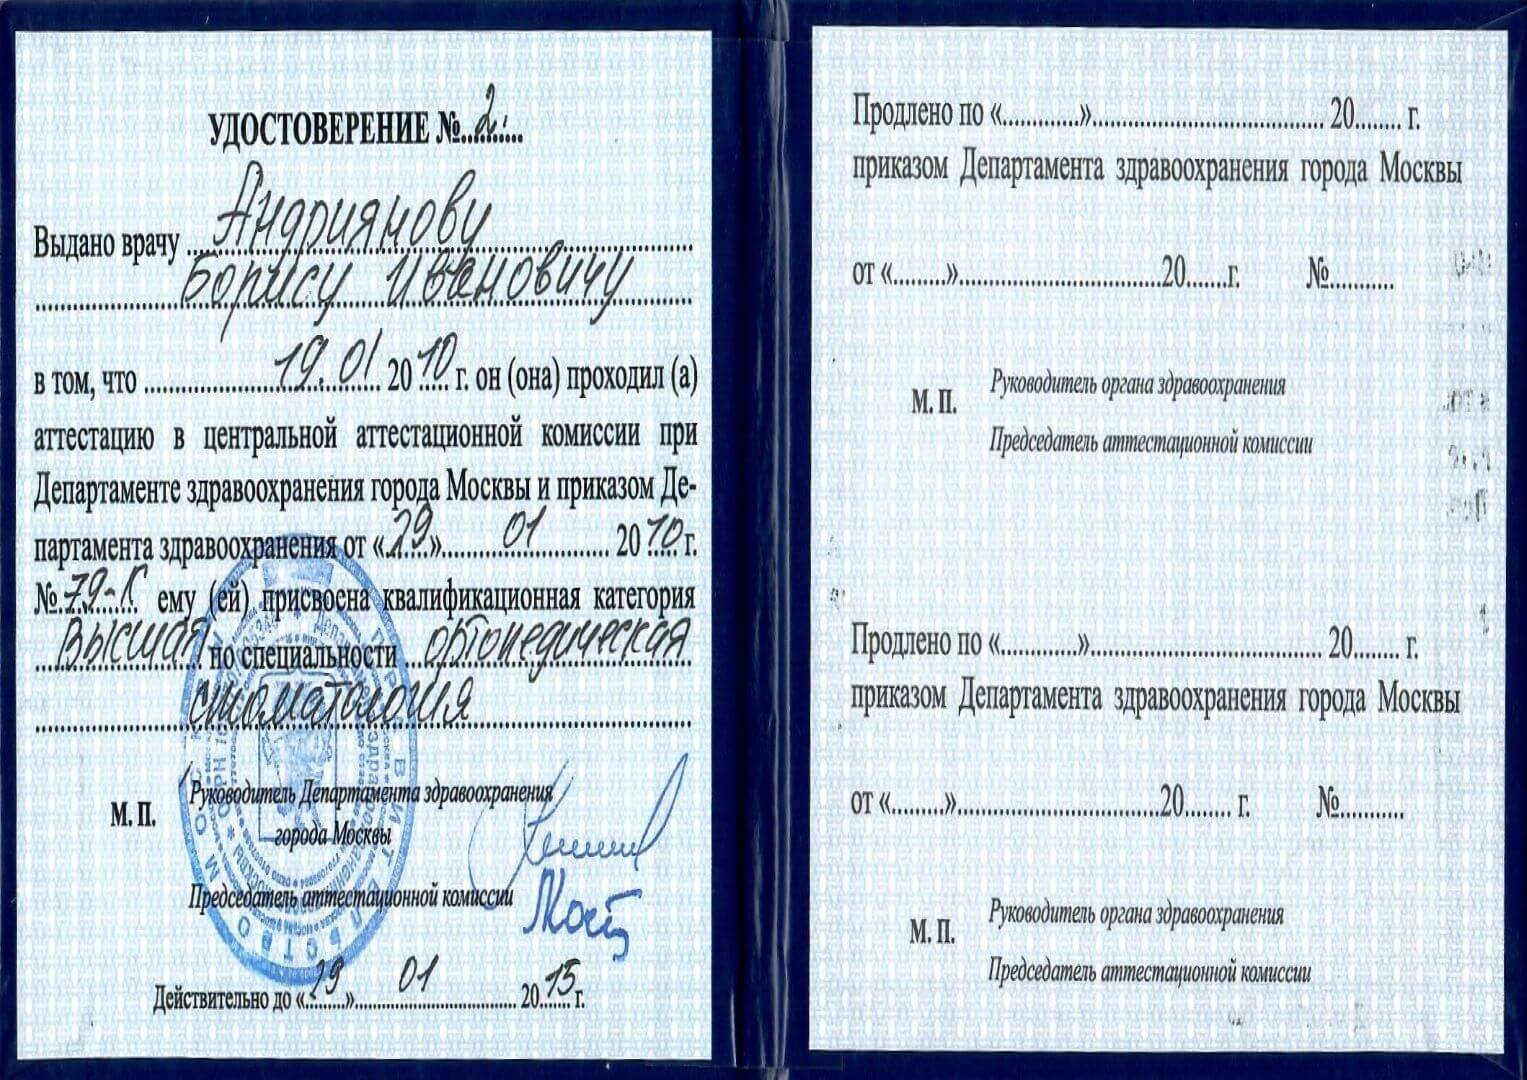 УДОСТОВЕРЕНИЕ №..2.....
Выдано врачу ....Андриянову....
Борису Ивановичу
в том, что ....19.01.... 20 10 г. он (она) проходил (а)
аттестацию в центральной аттестационной комиссии при
Департаменте здравоохранения города Москвы и приказом Де-
партамента здравоохранения от «29»....01.... 20 10 г.
№ 79-К ему (ей) присвоена квалификационная категория
Высшая по специальности ортопедическая
стоматология
М. П.
Руководитель Департамента здравоохранения
города Москвы
Председатель аттестационной комиссии
Действительно до «29»....01.... 20 15 г.
Продлено по «............».................................... 20....... г.
приказом Департамента здравоохранения города Москвы
от «........»................................20......г. №..........
М. П.
Руководитель органа здравоохранения
Председатель аттестационной комиссии
Продлено по «............».................................... 20....... г.
приказом Департамента здравоохранения города Москвы
от «........»................................20....... г. №..........
М. П.
Руководитель органа здравоохранения
Председатель аттестационной комиссии